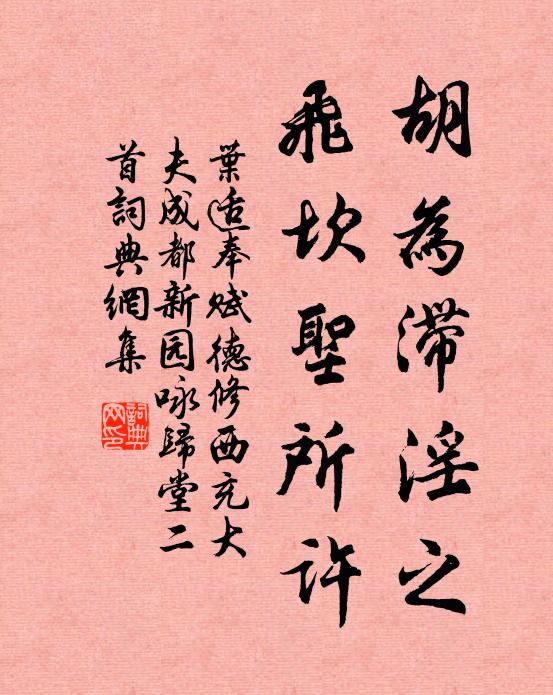 胡為滯淫之
飛坎聖所許
葉适奉賦德修西充大
夫成都新园咏歸堂二
首詞典網集
詞典
网印